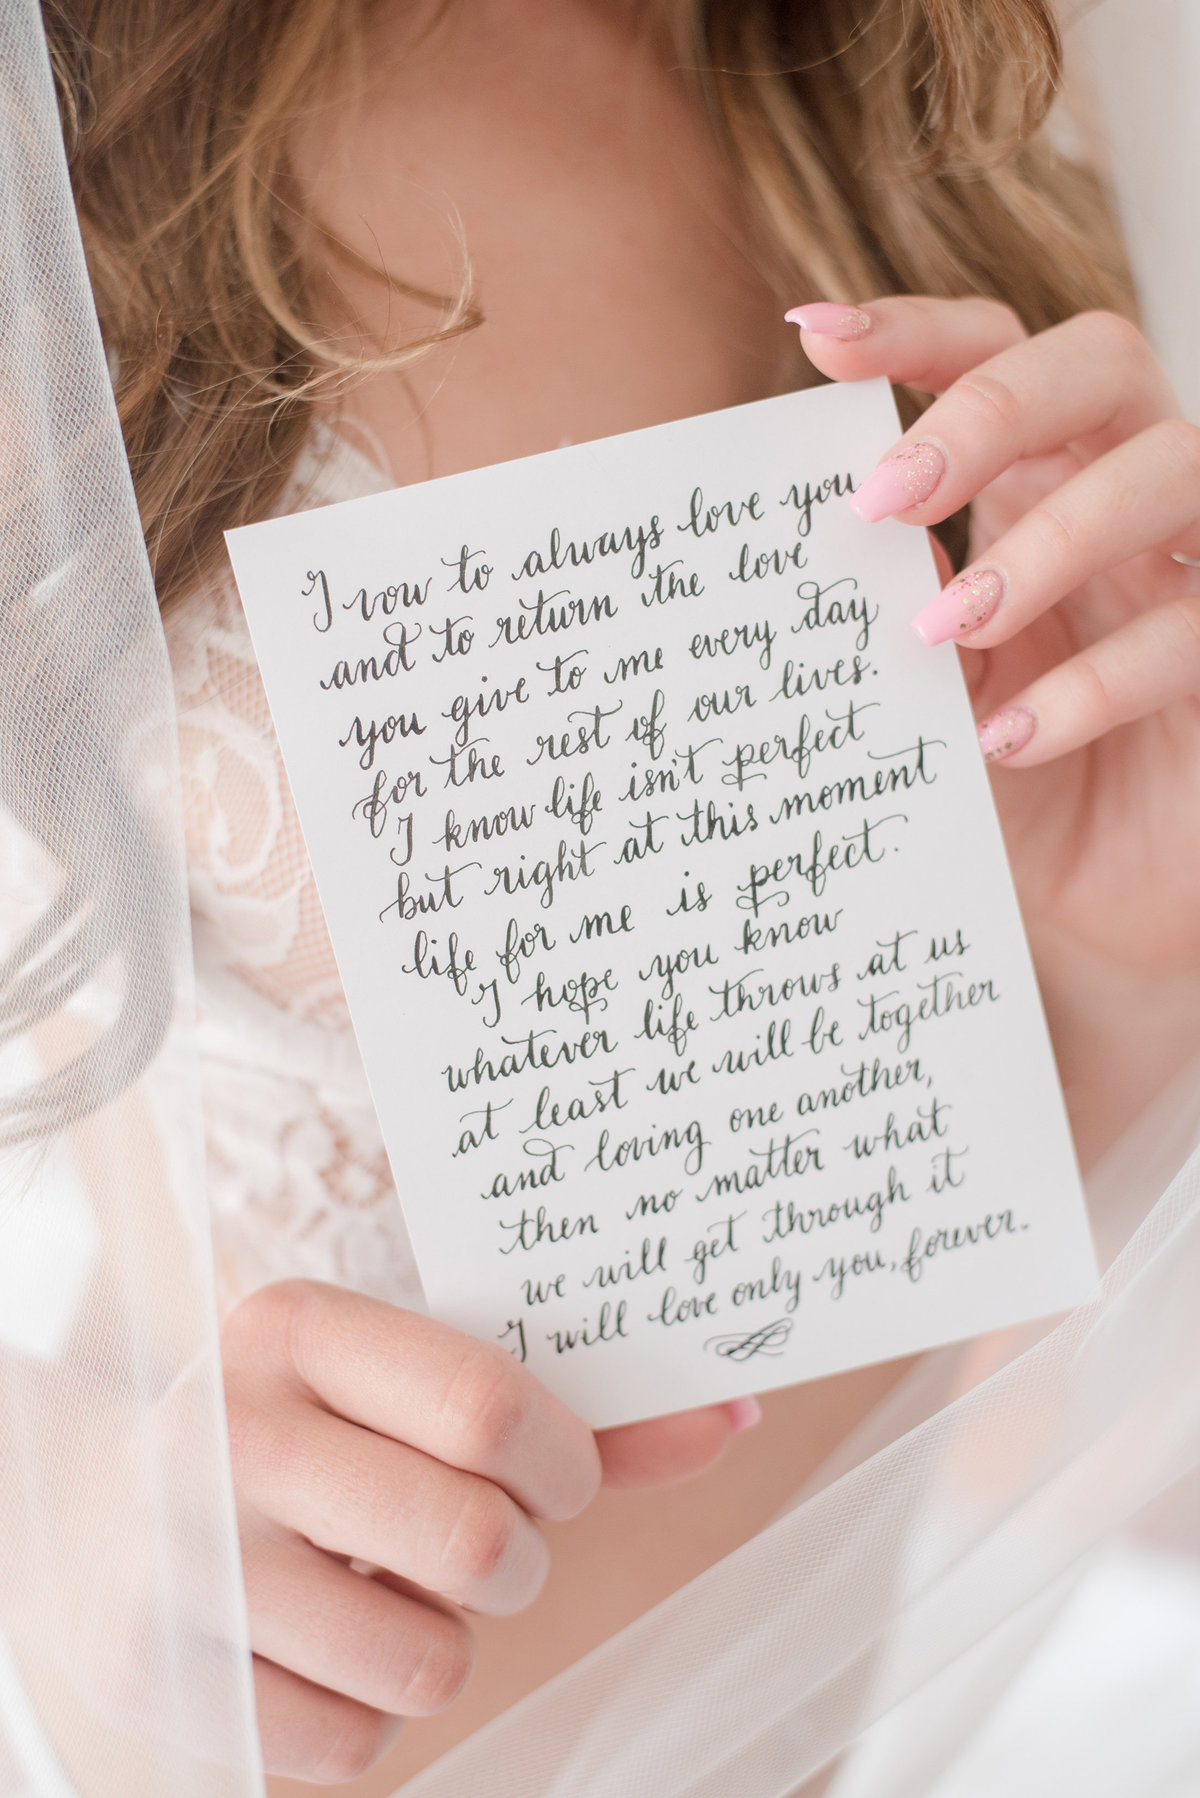 I vow to always love you
and to return the love
you give to me every day
for the rest of our lives.
I know life isn't perfect
but right at this moment
life for me is perfect.
I hope you know
whatever life throws at us
at least we will be together
and loving one another,
then no matter what
we will get through it
I will love only you, forever.